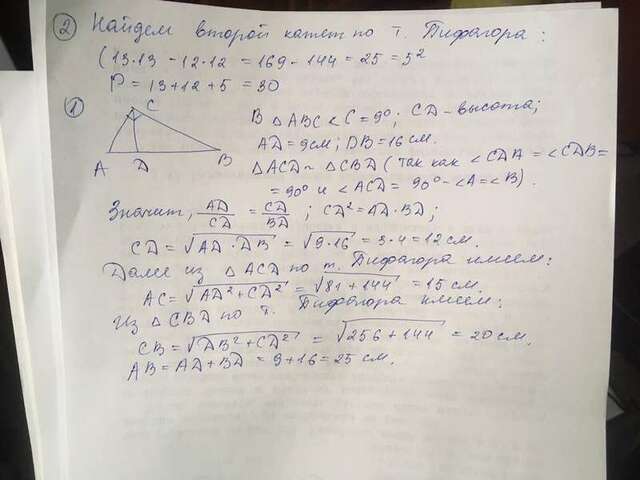 ② Найдем второй катет по т. Пифагора:
(13·13 - 12·12 = 169 - 144 = 25 = 5²
P = 13+12+5 = 30
①
C
A D B
В △ABC ∠C = 90°; CD - высота;
AD = 9см; DB = 16см.
△ACD ~ △CBD (так как ∠CDA = ∠CDB =
= 90° и ∠ACD = 90° - ∠A = ∠B).
Значит, AD/CD = CD/BD; CD² = AD·BD;
CD = √AD·DB = √9·16 = 3·4 = 12 см.
Далее из △ACD по т. Пифагора имеем:
AC = √AD²+CD² = √81+144 = 15 см.
Из △CBD по т. Пифагора имеем:
CB = √DB²+CD² = √256+144 = 20 см.
AB = AD+BD = 9+16 = 25 см.